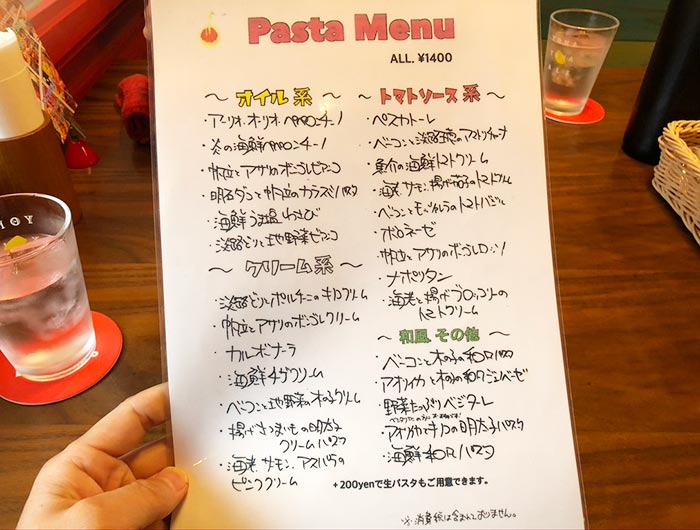 Pasta Menu
ALL. ¥1400
～ オイル系 ～
・アーリオ・オーリオ ペペロンチーノ
・炎の海鮮ペペロンチーノ
・帆立とアサリのボンゴレビアンコ
・明石ダコと帆立のカラスミパスタ
・海鮮うま塩わさび
・淡路どりと地野菜ビアンコ
～ クリーム系 ～
・淡路どりとポルチーニのキノコクリーム
・帆立とアサリのボンゴレクリーム
・カルボナーラ
・海鮮チーズクリーム
・ベーコンと地野菜の木の子クリーム
・揚げさつまいもの明太子
クリームパスタ
・海老、サーモン、アスパラの
ピンククリーム
～ トマトソース系 ～
・ペスカトーレ
・ベーコンと淡路玉ねぎのアマトリチャーナ
・魚介の海鮮トマトクリーム
・海老、サーモン、揚げ茄子のトマトクリーム
・ベーコンとモッツァレラのトマトバジル
・ボロネーゼ
・帆立とアサリのボンゴレロッソ
・ナポリタン
・海老と揚げブロッコリーの
トマトクリーム
～ 和風 その他 ～
・ベーコンと木の子の和風パスタ
・アオリイカと木の子の和風ジェノベーゼ
・野菜たっぷりベジターレ
・アオリイカとキノコの明太子パスタ
・海鮮和風パスタ
+200yenで生パスタもご用意できます。
※消費税は含まれておりません。